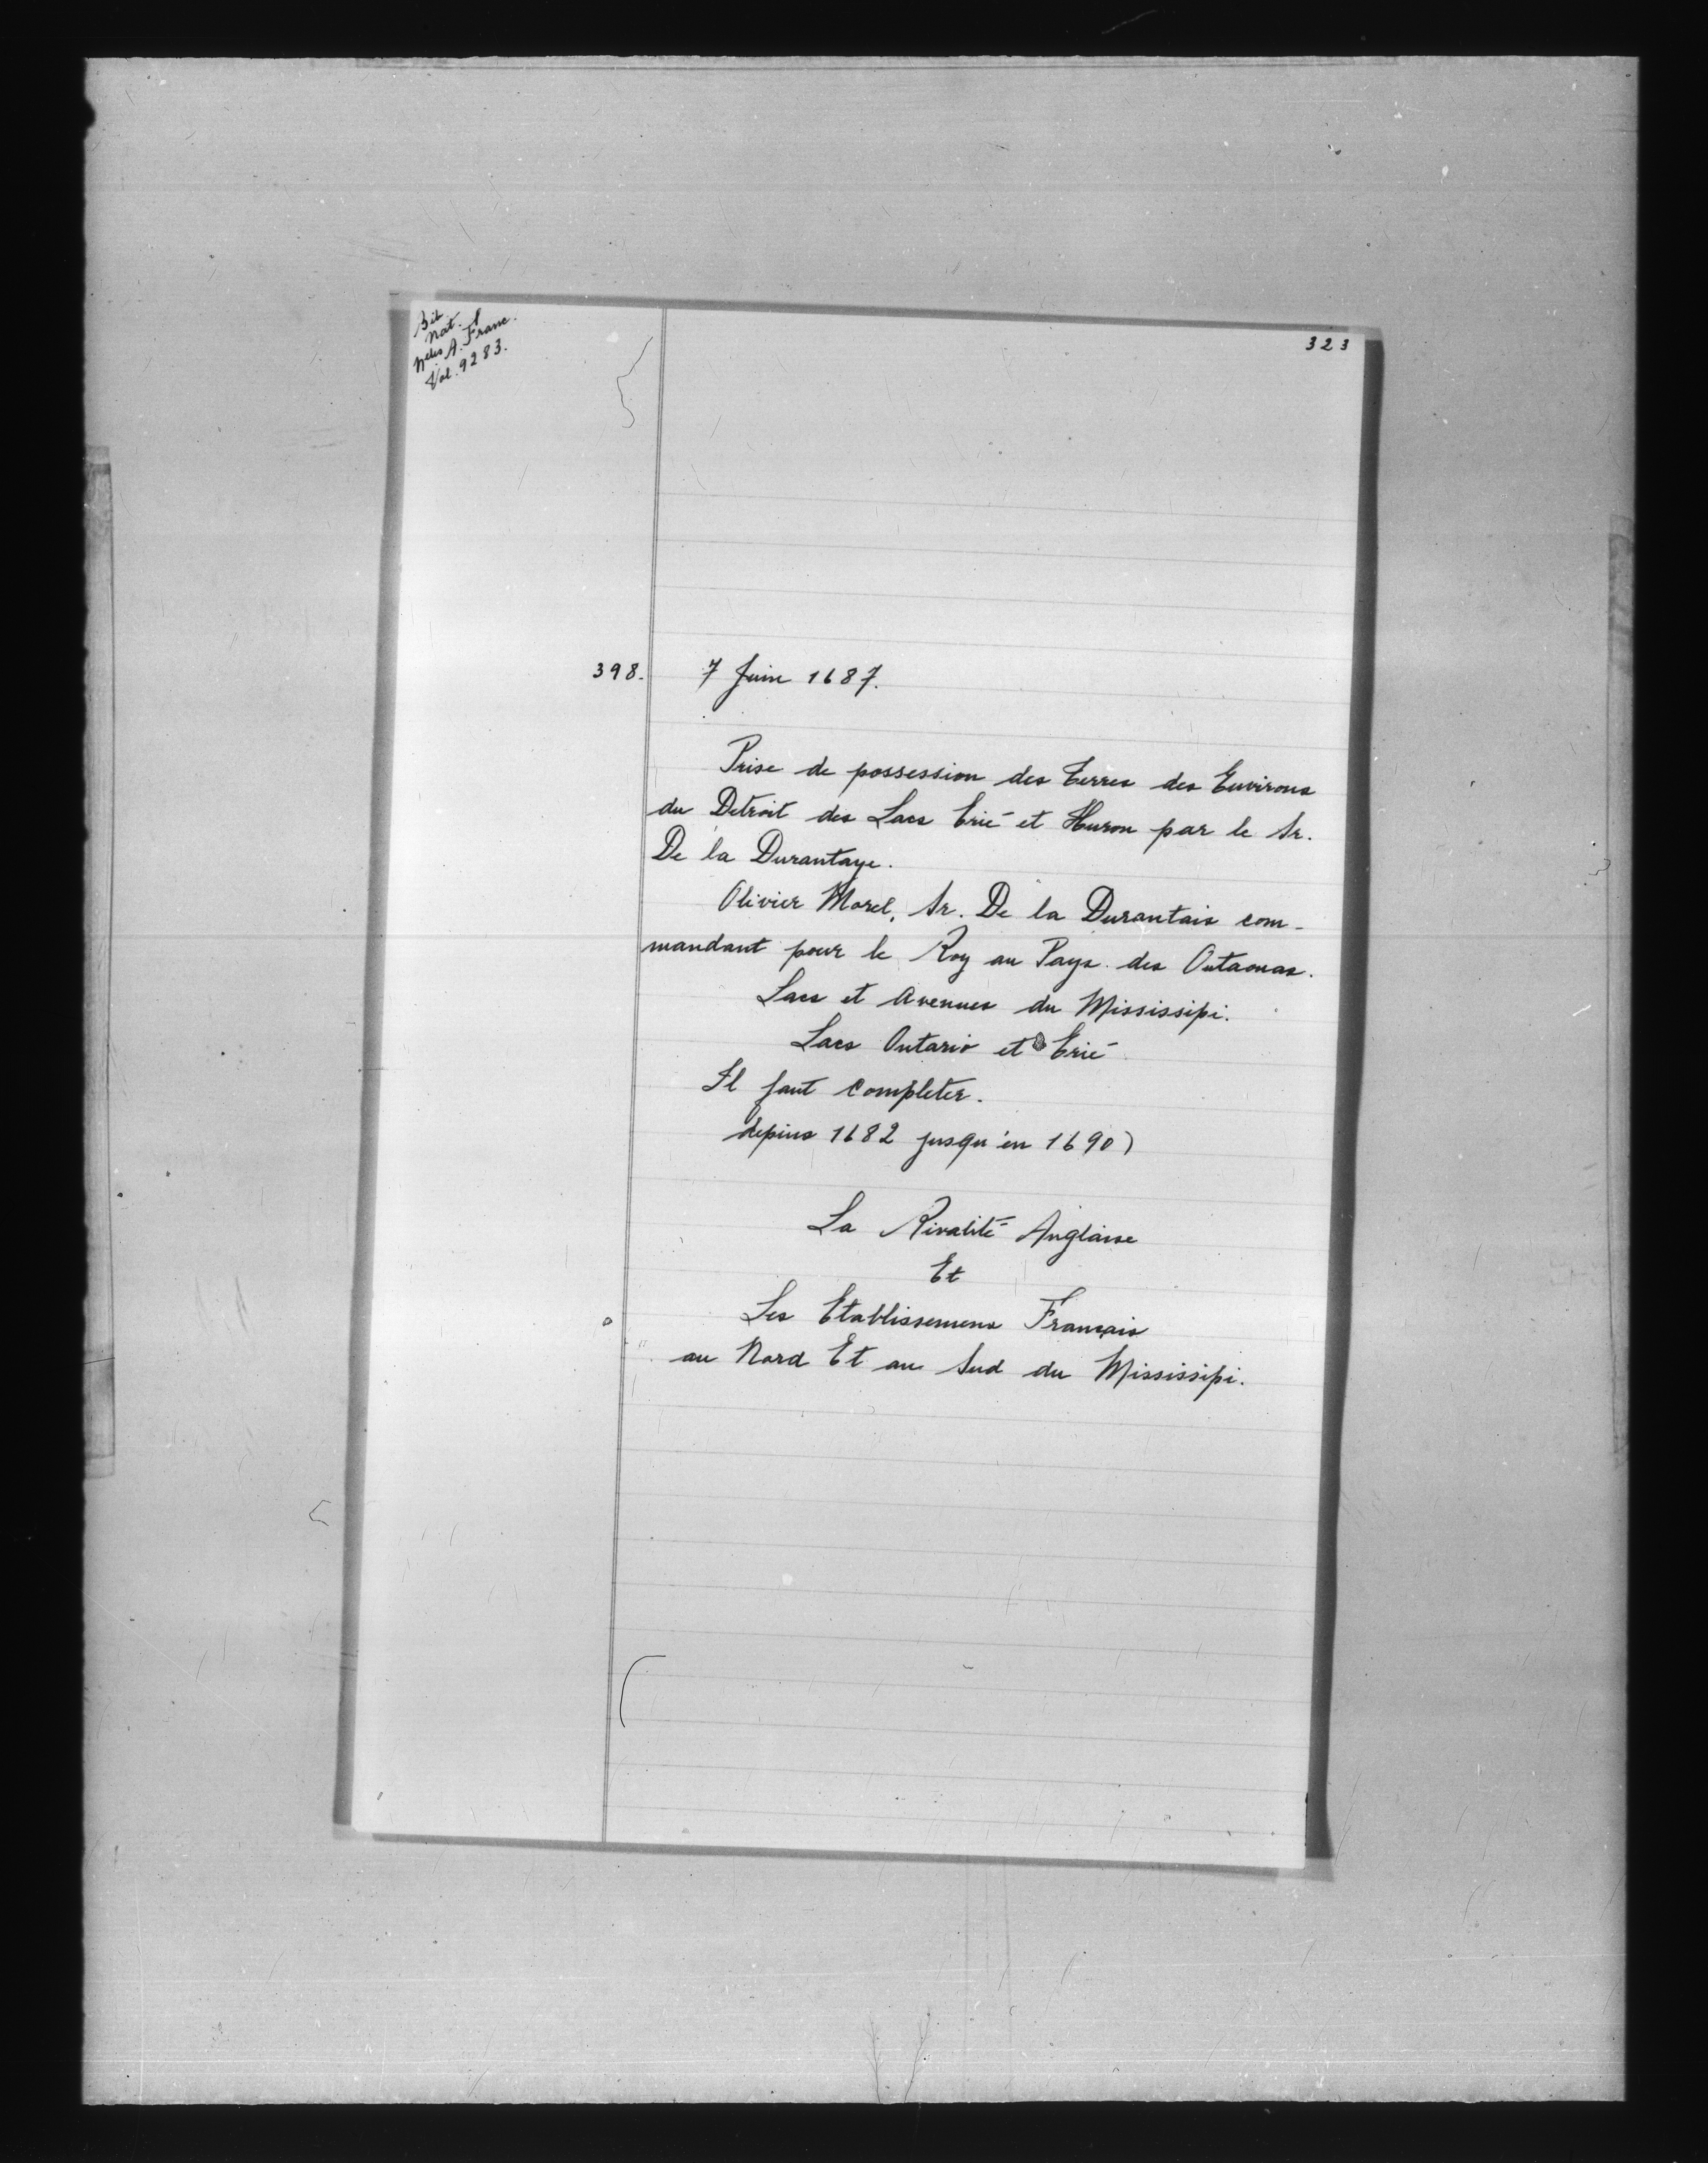 Bib
Nat.
Nelles A. Franc.
Vol. 9283.
323
398.
7 Juin 1687.
Prise de possession des terres des Environs
du Detroit des Lacs Erié et Huron par le Sr.
De la Durantaye.
Olivier Morel, Sr. De la Durantais com-
mandant pour le Roy au Pays des Outaouas.
Lacs et avenues du Mississipi.
Lacs Ontario et Erié
Il faut completer.
depius 1682 jusqu'en 1690)
La Rivalité Anglaise
Et
Les Etablissemens Français
au Nord Et au Sud du Mississipi.